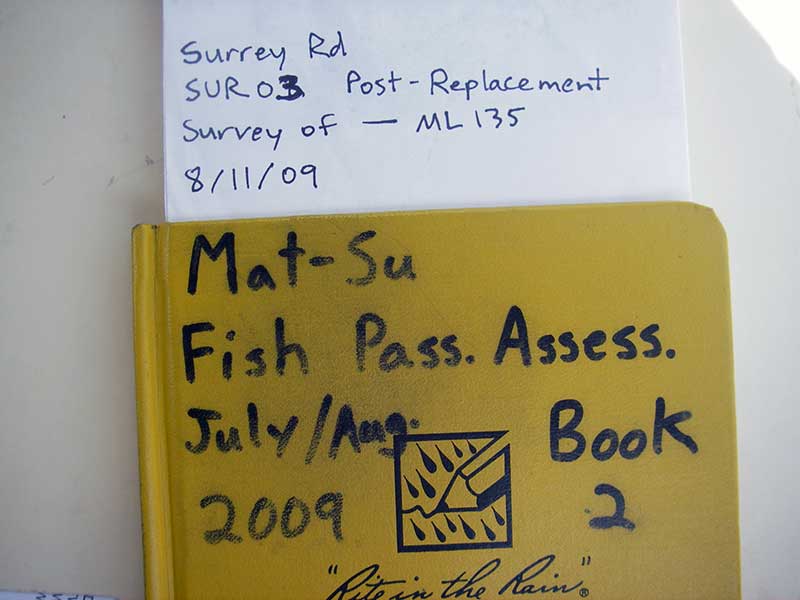 Surrey Rd
SUR03 Post-Replacement
Survey of — ML 135
8/11/09
Mat-Su
Fish Pass. Assess.
July/Aug. Book
2009 2
"Rite in the Rain"®